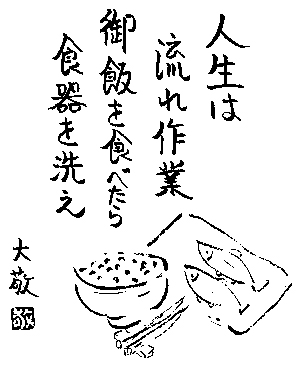 人生は
流れ作業
御飯を食べたら
食器を洗え
大敬